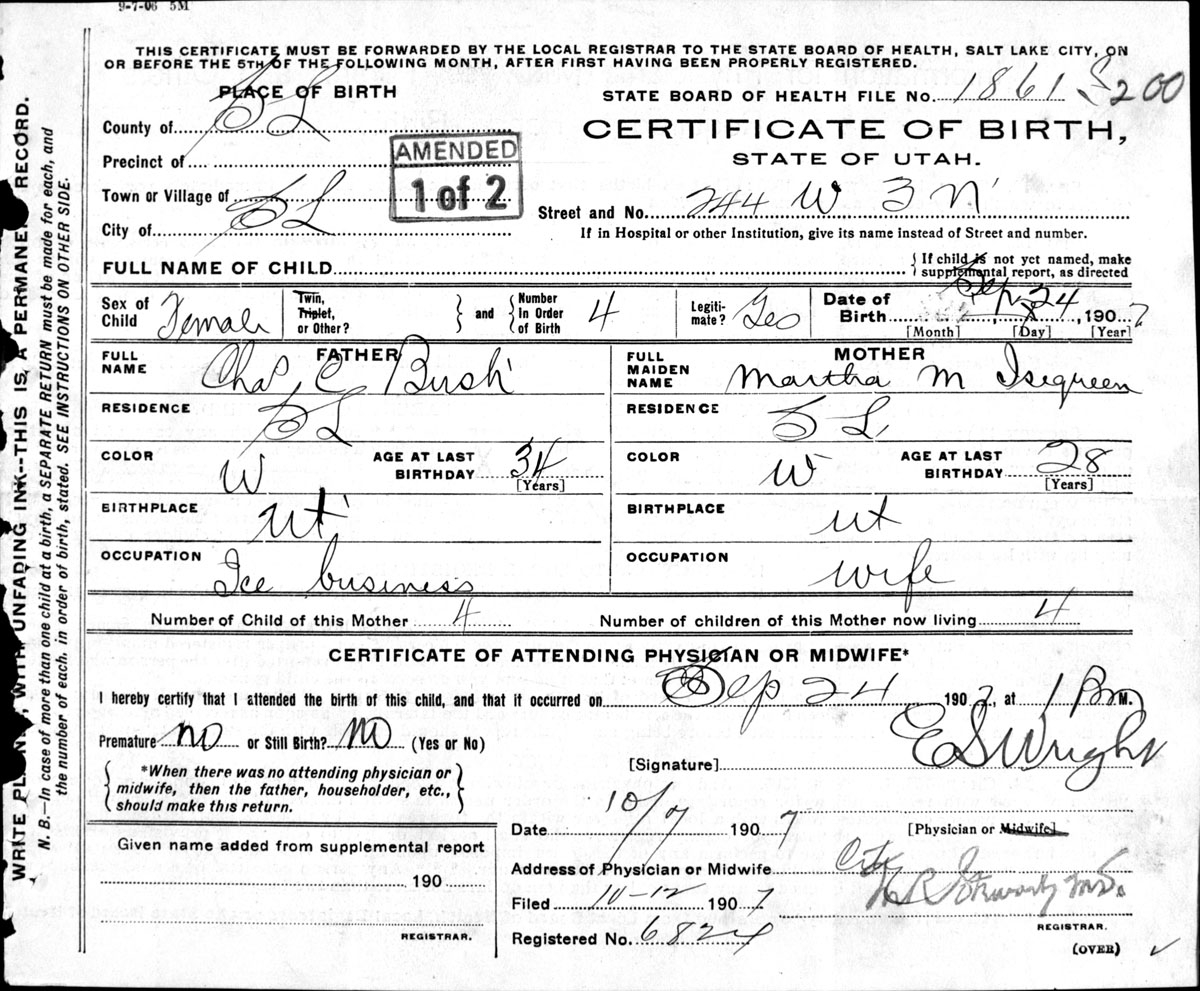 9-7-06 5M
THIS CERTIFICATE MUST BE FORWARDED BY THE LOCAL REGISTRAR TO THE STATE BOARD OF HEALTH, SALT LAKE CITY, ON
OR BEFORE THE 5TH OF THE FOLLOWING MONTH, AFTER FIRST HAVING BEEN PROPERLY REGISTERED.
PLACE OF BIRTH
STATE BOARD OF HEALTH FILE No. 1861 S200
County of SL
CERTIFICATE OF BIRTH,
STATE OF UTAH.
Precinct of
AMENDED
1 of 2
Town or Village of
City of SL
Street and No. 244 W 3 N
If in Hospital or other Institution, give its name instead of Street and number.
FULL NAME OF CHILD
{If child is not yet named, make
supplemental report, as directed
Sex of Child Female
Twin, Triplet, or Other?
} and {
Number In Order of Birth 4
Legitimate? Yes
Date of Birth Sep 24, 1907
[Month] [Day] [Year]
FATHER
FULL NAME Chas C Bush
RESIDENCE SL
COLOR W
AGE AT LAST BIRTHDAY 34
[Years]
BIRTHPLACE Ut
OCCUPATION Ice business
MOTHER
FULL MAIDEN NAME Martha M Isegreen
RESIDENCE SL
COLOR W
AGE AT LAST BIRTHDAY 28
[Years]
BIRTHPLACE Ut
OCCUPATION Wife
Number of Child of this Mother 4
Number of children of this Mother now living 4
CERTIFICATE OF ATTENDING PHYSICIAN OR MIDWIFE*
I hereby certify that I attended the birth of this child, and that it occurred on Sep 24 1907, at 1 P M.
Premature no or Still Birth? no (Yes or No)
[Signature] E S Wright
{*When there was no attending physician or
midwife, then the father, householder, etc.,
should make this return.}
Date 10/7 1907
[Physician or Midwife]
Given name added from supplemental report
190
REGISTRAR.
Address of Physician or Midwife City
Filed 10-12 1907
M.D.
REGISTRAR.
Registered No. 6824
(OVER)
WRITE PLAINLY, WITH UNFADING INK--THIS IS A PERMANENT RECORD.
N. B.--In case of more than one child at a birth, a SEPARATE RETURN must be made for each, and
the number of each, in order of birth, stated. SEE INSTRUCTIONS ON OTHER SIDE.